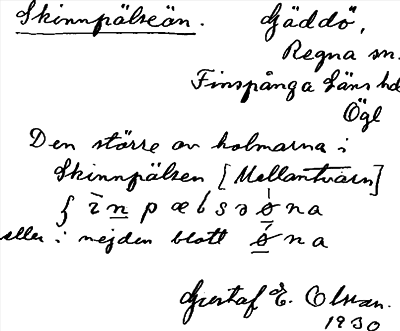 Skinnpälseån. Gäddö,
Regna sn.
Finspånga läns hd
Ögl
Den större av holmarna i
Skinnpälsen [Mellantvärn]
eller i nejden blott øna
Gustaf E. Olsson.
1930